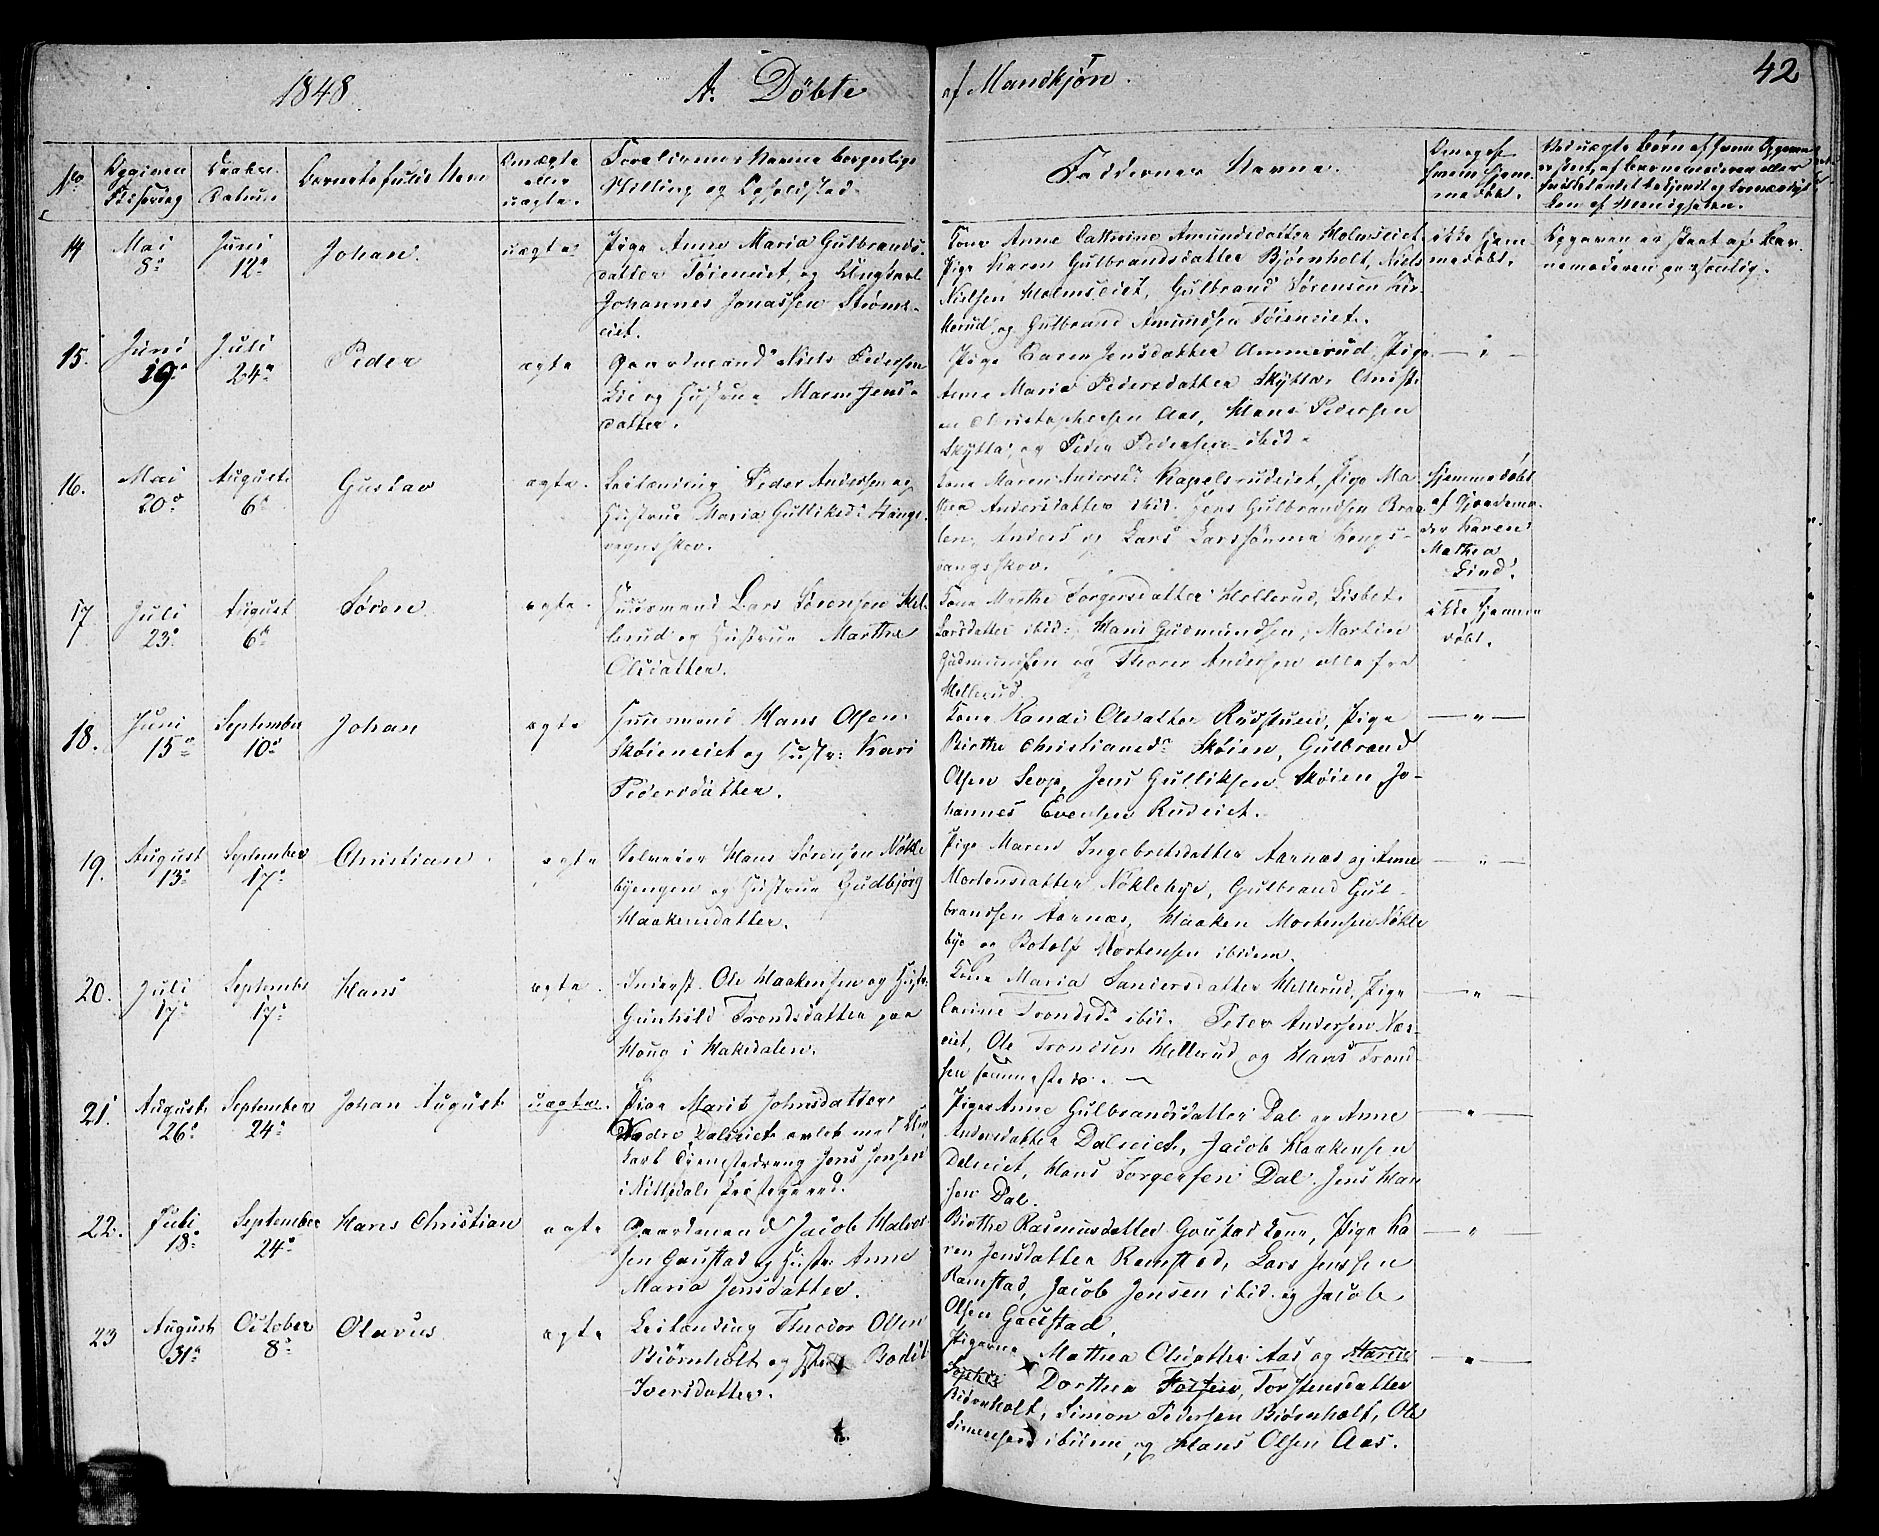 1848. A. Döbte af Mandkjön. 42
No Opgiven Födselsdag Daabens Datum. Barnets fulde Navn Om ægte eller uægte. Forældrenes Navne borgerlige Stilling og Opholdsted. Faddernes Navne. Om og af hvem hjemmedöbt.
14 Mai 8de Juni 12te Johan. uægte
Pige Anne Maria Gulbrands-
datter Töieneiet, og Ungkarl
Johannes Jonassen Ströms-
eiet.
Kone Anne Cathrine Amundsdatter Holmseiet
Pige Karen Gulbrandsdatter Björnholt, Niels
Nielsen Holmseiet, Gulbrand Sörensen
og Gulbrand Amundsen Töieneiet.
ikke hjem-
medöbt.
Opgaven er skeet af Bar-
nemoderen personlig.
15. Juni 29 Juli 24de Peder ægte
Gaardmand Niels Pedersen
Lie og Hustrue Maren Jens-
datter.
Pige Karen Jensdatter Ammerud, Pige
Anne Maria Pedersdatter Skytta, Christi-
an Christophersen Aas, Hans Pedersen
Skytta, og Peder Pedersen ibid.
— " —
16. Mai 20de August 6te Gustav ægte.
Leilænding Peder Andersen og
Hustrue Maria Gulliksd:
vangsskov.
Kone Maren Andersdr Kapelsrudeiet, Pige Ma-
thea Andersdatter ibid. Jens Gulbrandsen Braa-
ten, Anders og Lars Larssönner Kongs-
vangsskov.
hjemmedöbt
af Gjordemo-
der Karen
Mathea
Lind.
17. Juli 23de August 6te Sören ægte.
Huusmand Lars Sörensen Hel-
lerud og Hustrue Marthe
Olsdatter.
Kone Marthe Torgersdatter Hellerud, Lisbet
Larsdatter ibid: Hans Gudmundsen, Martin
Gudmundsen og Thorer Andersen alle fra
Hellerud
ikke hjemme-
döbt.
18. Juni 15de September 10de Johan ægte
Huusmand Hans Olsen
Sköieneiet og Hustr: Kari
Pedersdatter.
Kone Randi Olsdatter Rudstuen, Pige
Birthe Christiansdr Sköien, Gulbrand
Olsen Sevje, Jens Gulliksen Sköien, Jo-
hannes Evensen Rudeiet.
— " —
19. August 13de September 17de Christian ægte
Selveier Hans Sörensen Nökle-
byengen og Hustrue Gudbjörg
Haakensdatter.
Pige Maren Ingebretsdatter Aarnæs og Anne
Mortensdatter Nöklebye, Gulbrand Gul-
brandsen Aarnæs, Haaken Mortensen Nökle-
bye og Botolf Mortensen ibidem.
— " —
20. Juli 17de September 17de Hans ægte.
Inderst Ole Haakensen og Hustr:
Gunhild Trondsdatter paa
Houg i Hakedalen.
Kone Maria Sandersdatter Hellerud, Pige
Carine Trondsdr ibid. Peter Andersen Næs-
eiet, Ole Trondsen Hellerud og Hans Trond-
sen sammesteds. —
— " —
21. August 26de September 24de Johan August uægte.
Pige Marit Johnsdatter
Nedre Dalseiet avlet med Ung-
karl Tjenestedreng Jens Jensen
i Nittedals Præstegaard.
Piger Anne Gulbrandsdatter Dal og Anne
Andersdatter Dalseiet, Jacob Haakensen
Dalseiet, Hans Torgersen Dal. Jens Han-
sen Dal.
— " —
22. Juli 18de September 24de Hans Christian ægte
Gaardmand Jacob Halvor-
sen Gaustad og Hustr: Anne
Maria Jensdatter.
Birthe Rasmusdatter Goustad Kone, Pige Ka-
ren Jensdatter Ramstad, Lars Jenssen
Ramstad, Jacob Jensen ibid. og Jacob
Olsen Gaustad.
— " —
23 August 31te October 8de Olavus ægte
Leilænding Theodor Olsen
Biörnholt og Hustr Bodil
Iversdatter.
Pigerne Mathea Olsdatter Aas og Marie
Sophie Dorthea Torstensdatter
Biörnholt, Simon Pedersen Biörnholt, Ole
Simensen ibidem, og Hans Olsen Aas.
— " —